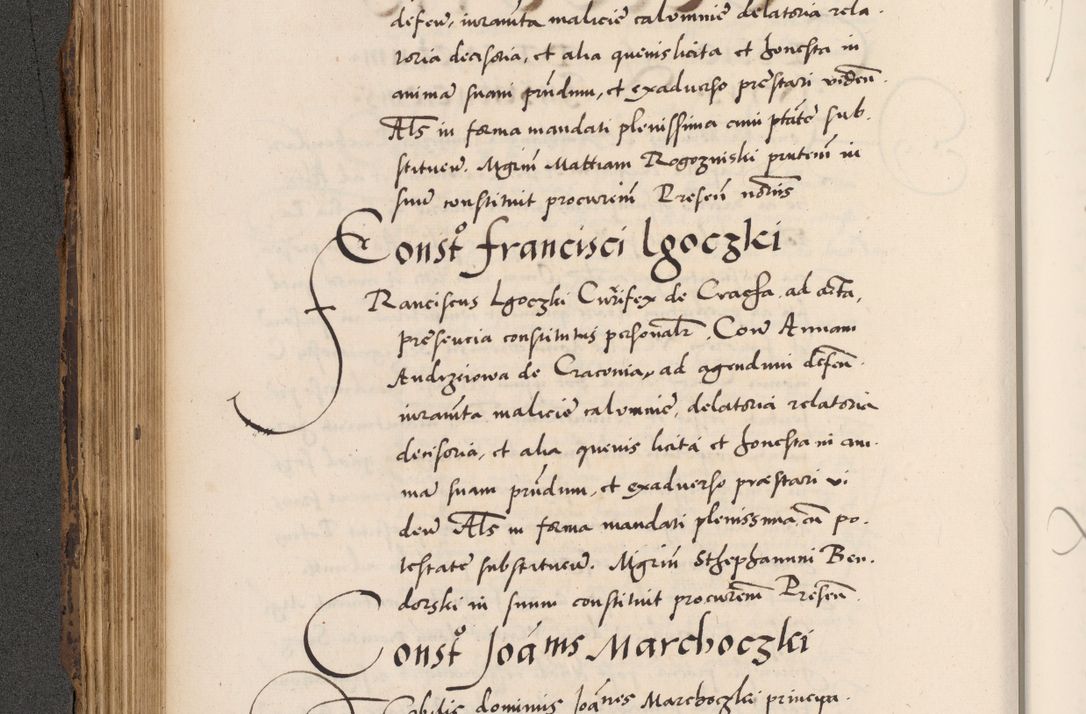 defeñ, iuramta malicie calumnie delatoria rela-
toria decisoria, et alia quevis licita et honesta in
animã suam prñdum, et exadverso prestari videñ.
Als in forma mandati plenissima cum ptãte sub-
stitueñ. Mgrm Mattiam Rogozniski pñtem in
suum constituit procurem Preseñ notriis
Const⁰ Francisci Lgoczki
Franciscus Lgoczki Cürifex de Cracha, ad acta,
presencia constitutus personalr, Conē Annam
Andrzeiowa de Craconia, ad agendum defeñ.
iuramta malicie calumnie, delatoria relatoria
decisoria, et alia quevis licita et honesta in ani-
mã suam prñdum, et exadverso præstari vi
deñ Als in forma mandati plenissima, cũ po-
testate substitueñ. Mgrm Sthephanum Ben-
dorski in suum constituit procurem Preseñ
Const⁰ Joãnis Marchoczki
Nobilis dominus Joãnes Marchoczki principa-